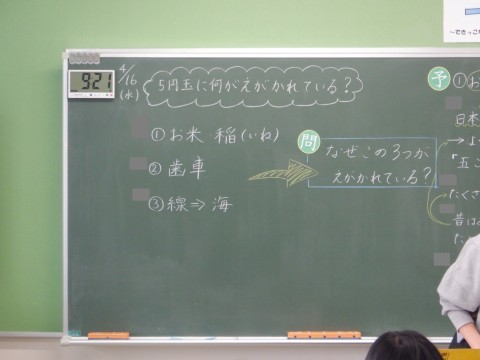 ~できっこ
9:21
4/16
(水)
5円玉に何がえがかれている?
①お米 稲(いね)
②歯車
③線⇒海
問
なぜこの3つが
えがかれている?
予
①お
日本
→よ
「五
たくさ
昔は
た